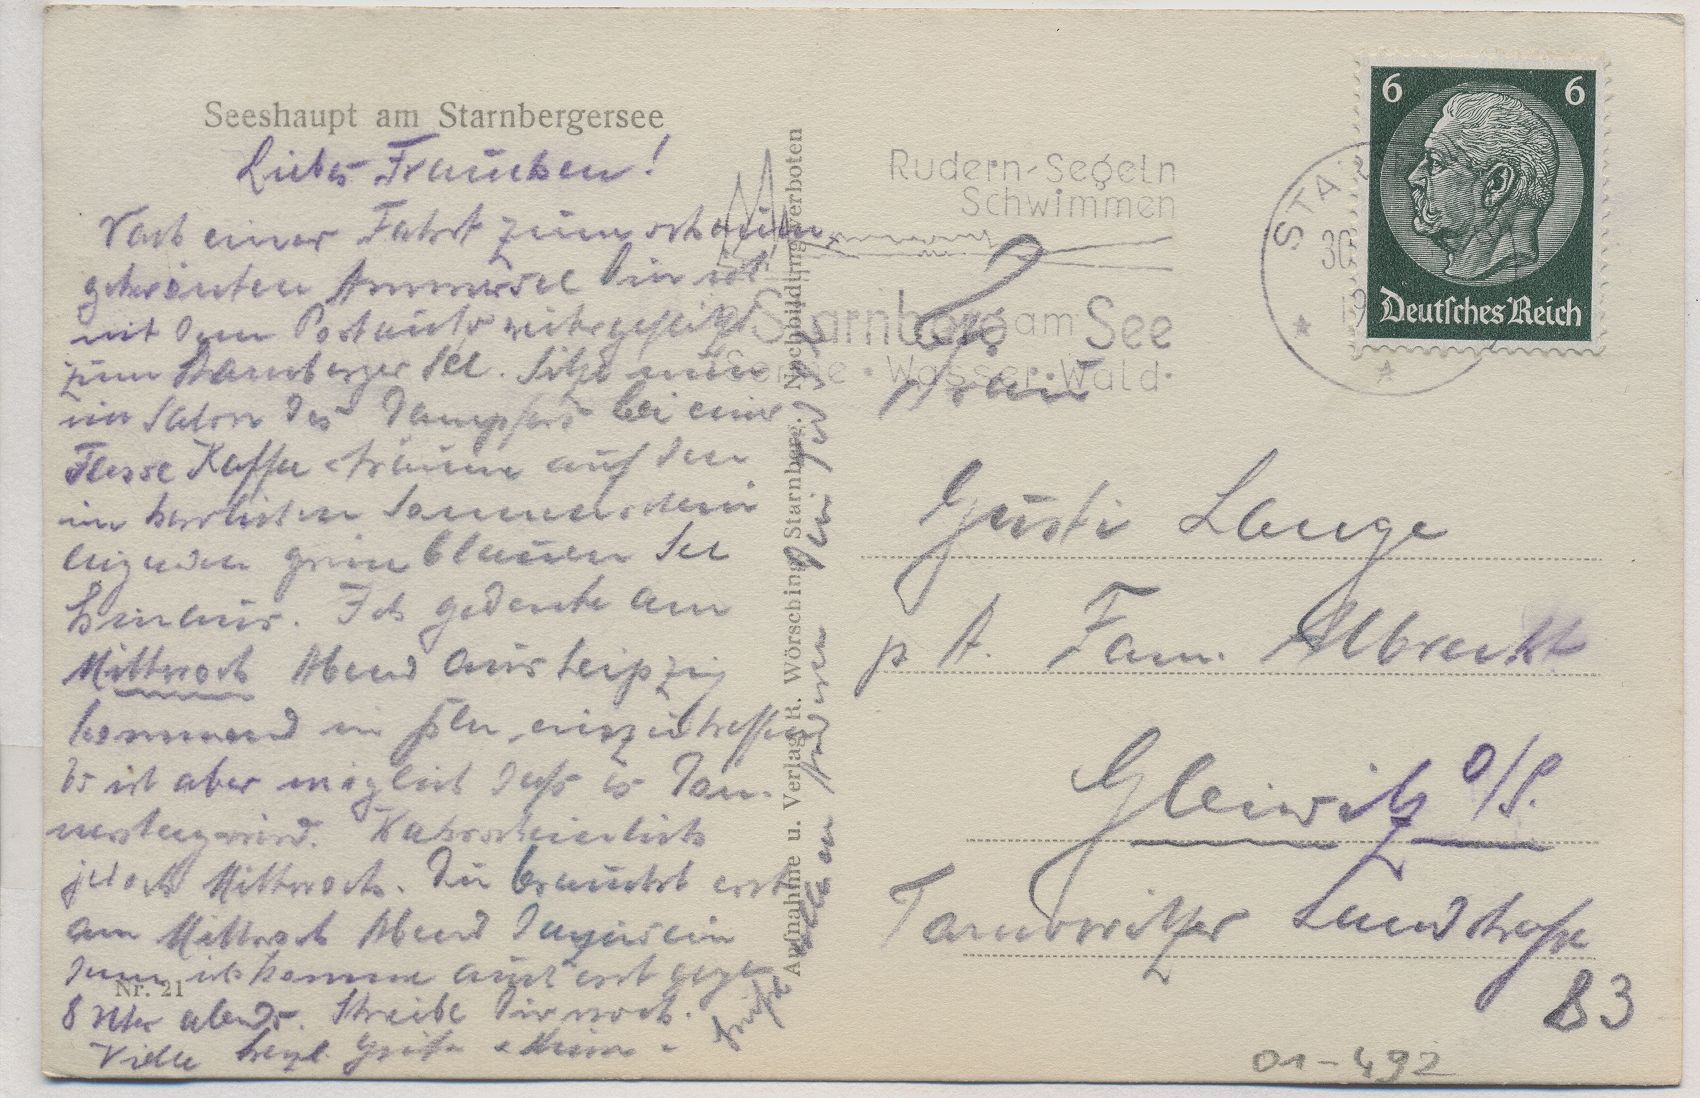 Seeshaupt am Starnbergersee
Liebes Frauchen!
Nach einer Fahrt zum schauum
gekrönten Ammersee bin ich
mit dem Postauto
zum Starnberger See. Sitze nun
im Salon des Dampfers bei einer
Tasse Kaffee träume auf den
im herrlichsten Sonnenschein
liegenden grün blauen See
hinaus. Ich gedenke am
Mittwoch Abend aus Leipzig
kommend in einzutreffen
Es ist aber möglich dass es Don-
nerstag wird. Wahrscheinlich
jedoch Mittwoch. Du brauchst erst
am Mittwoch Abend da zu sein
denn ich komme auch erst gegen
8 Uhr abends. Schreibe Dir noch.
Viele herzl. Grüße & Küsse
Grüße allen anderen Dein
Nr. 21
Aufnahme u. Verlag R. Wörsching, Starnberg. Nachbildung verboten
Rudern-Segeln
Schwimmen
Starnberg am See
Sonne • Wasser • Wald •
STAR
30
19
6 6
Deutsches Reich
Frau
Gusti Lange
p A. Fam. Albrecht
Gleiwitz O/S.
Tarnowitzer Landstraße
83
01-492